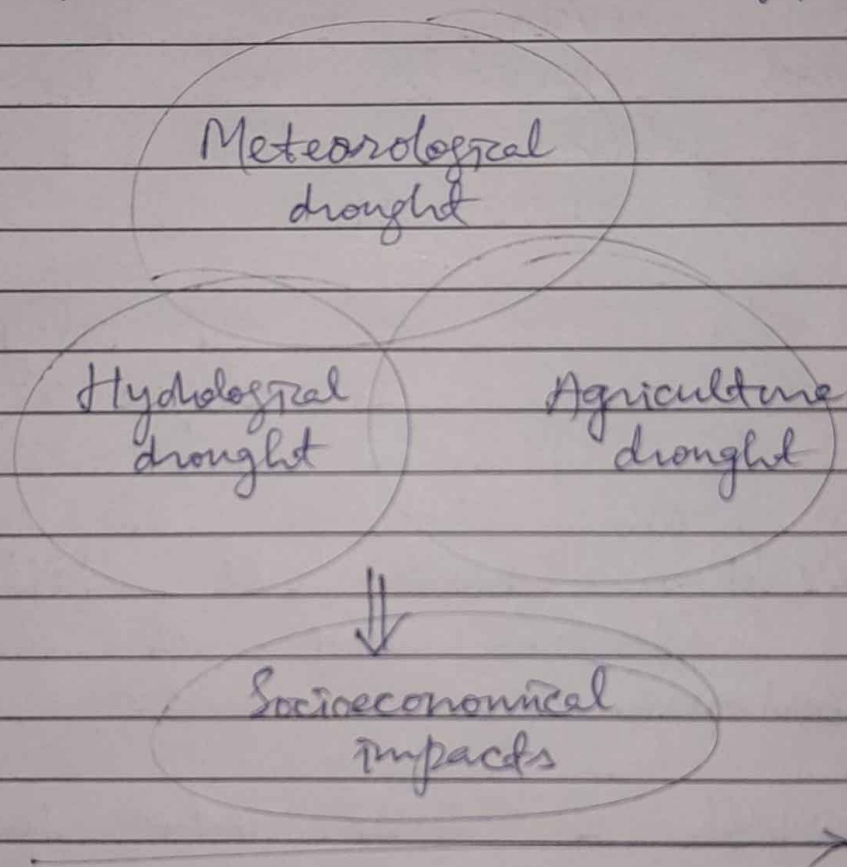 Meteorological
drought
Hydrological
drought
Agriculture
drought
Socioeconomical
impacts